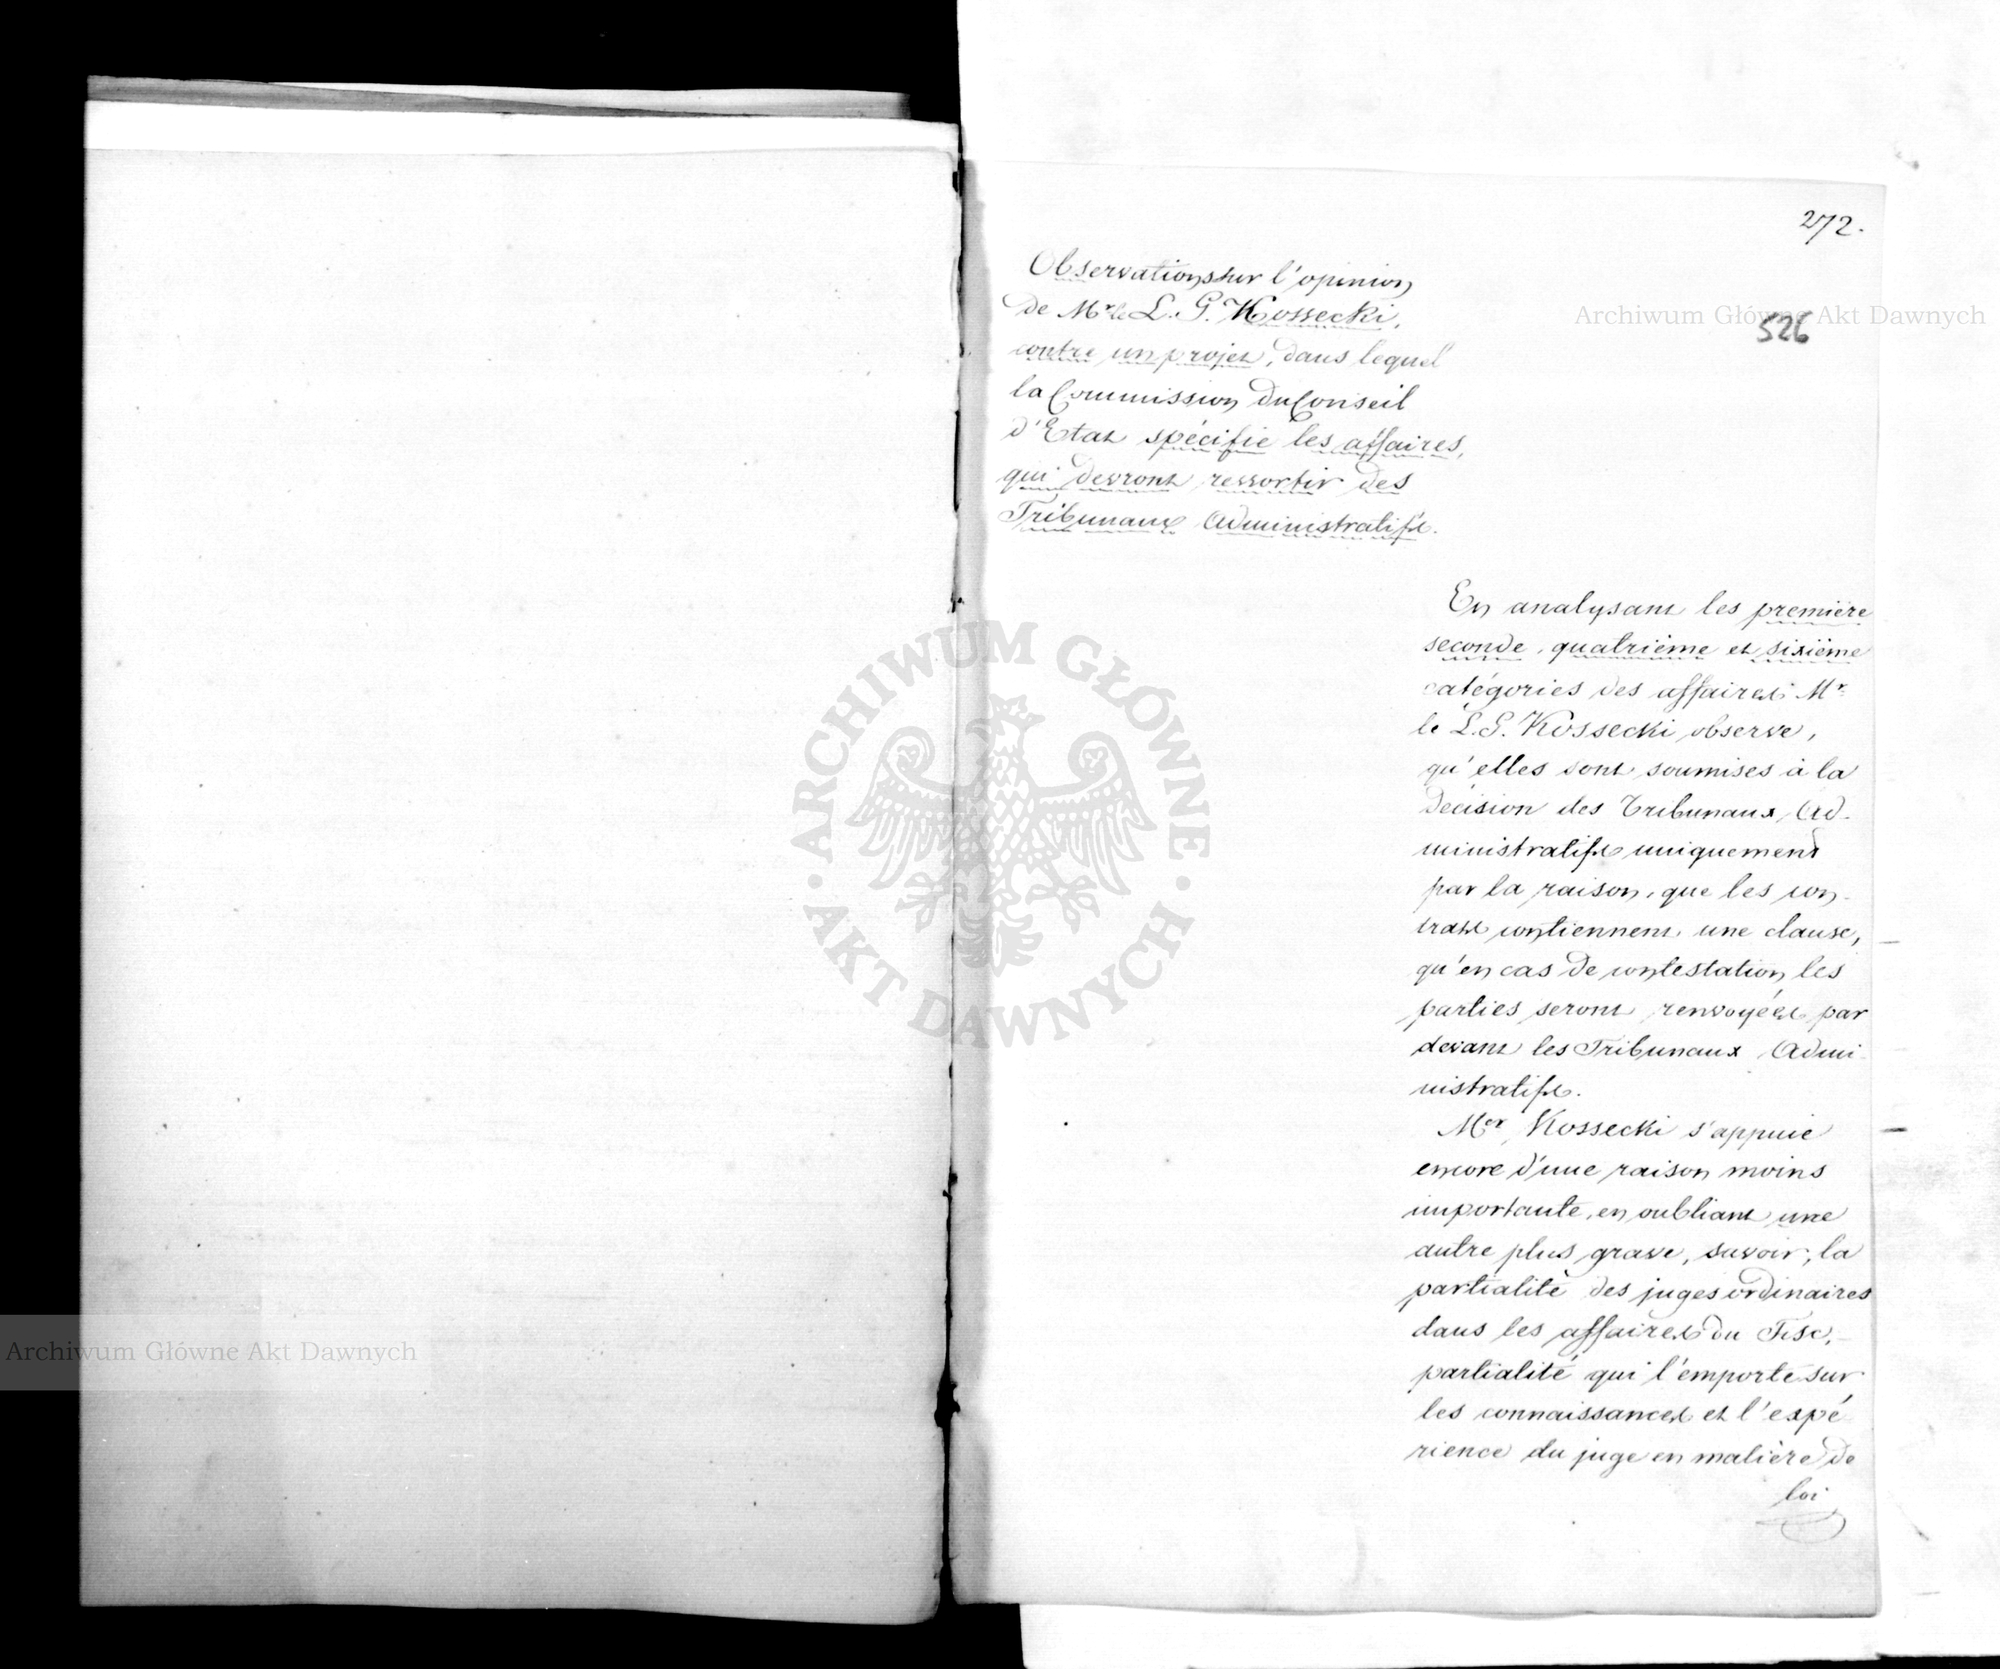 272.
Observations sur l'opinion
de Mr le L. G. Kossecki,
contre un projet, dans lequel
la Commission du Conseil
d'Etat spécifie les affaires,
qui devront ressortir des
Tribunaux Administratifs.
Archiwum Główne Akt Dawnych
526
En analysant les première
seconde, quatrième et sixième
catégories des affaires Mr
le L. G. Kossecki observe,
qu'elles sont soumises à la
décision des Tribunaux Ad-
ministratifs uniquement
par la raison, que les con-
trats contiennent une clause,
qu'en cas de contestation les
parties seront renvoyées par
devant les Tribunaux Admi-
nistratifs.
Mer Kossecki s'appuie
encore d'une raison moins
importante, en oubliant une
autre plus grave, savoir, la
partialité des juges ordinaires
dans les affaires du Fisc,
partialité qui l'emporte sur
les connaissances et l'expé
rience du juge en matière de
loi
ARCHIWUM GŁÓWNE
AKT DAWNYCH
Archiwum Główne Akt Dawnych